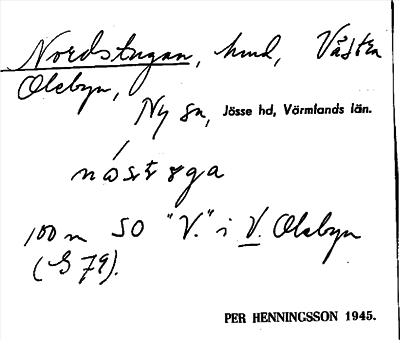 Nordstugan, hmd, Västra
Olsbyn,
Ny sn, Jösse hd, Värmlands län.
100 m SO "V." i V. Olsbyn
(S 79).
PER HENNINGSSON 1945.